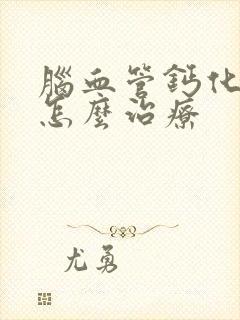 腦血管鈣化
怎麼治療
尤勇